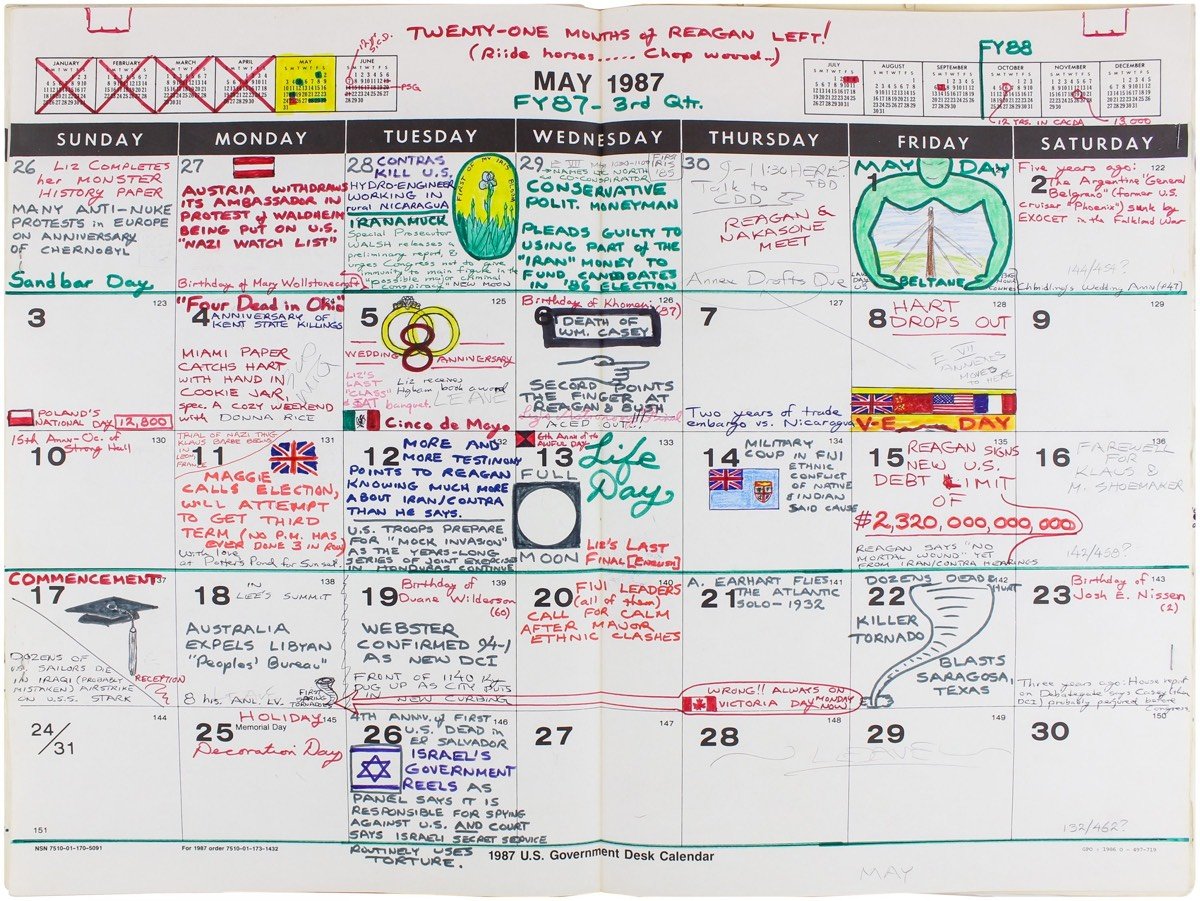 TWENTY-ONE MONTHS of REAGAN LEFT!
(Riide horses..... Chop wood..)
MAY 1987
FY87 - 3rd Qtr.
FY88
JANUARY
FEBRUARY
MARCH
APRIL
MAY
JUNE
JULY
AUGUST
SEPTEMBER
OCTOBER
NOVEMBER
DECEMBER
PSG
12 YRS. IN CACDA
13,000
SUNDAY
MONDAY
TUESDAY
WEDNESDAY
THURSDAY
FRIDAY
SATURDAY
26
LIZ COMPLETES
her MONSTER
HISTORY PAPER
MANY ANTI-NUKE
PROTESTS in EUROPE
ON ANNIVERSARY
OF CHERNOBYL
Sandbar Day
27
AUSTRIA WITHDRAWS
ITS AMBASSADOR IN
PROTEST of WALDHEIM
BEING PUT ON U.S.
"NAZI WATCH LIST"
Birthday of Mary Wollstonecraft
28
CONTRAS
KILL U.S.
HYDRO-ENGINEER
WORKING IN
rural NICARAGUA
IRANAMUCK
Special Prosecutor
WALSH releases a
preliminary report, &
urges Congress not to give
immunity to main figure in the
"possible major criminal
conspiracy"
NEW MOON
FIRST OF MY IRIS BLOOMS
29
NAMES LC NORTH
CO-CONSPIRATOR
FIRST
IRIS
'85
CONSERVATIVE
POLIT. MONEYMAN
PLEADS GUILTY TO
USING PART of the
"IRAN" MONEY TO
FUND CANDIDATES
IN '86 ELECTION
30
9-11:30 HERE?
Talk to TDD
REAGAN &
NAKASONE
MEET
Annex Drafts Due
MAY DAY
1
BELTANE
Five years ago:
122
2
The Argentine "General
Belgrano" (former U.S.
cruiser "Phoenix") sunk by
EXOCET in the Falkland War
144/454?
Chbidling's Wedding Anniv (#47)
3
123
"Four Dead in Ohio"
4
ANNIVERSARY OF
KENT STATE KILLINGS
MIAMI PAPER
CATCHS HART
WITH HAND IN
COOKIE JAR,
spec. A COZY WEEKEND
with DONNA RICE
POLAND'S
NATIONAL DAY
12,800
5
125
8
WEDDING ANNIVERSARY
LIZ'S
LAST
"CLASS"
EAT
Liz receives
Higham book award
banquet.
LEAVE
Cinco de Mayo
Birthday of Khomeni
(87)
126
6
DEATH OF
WM. CASEY
SECOND POINTS
THE FINGER AT
REAGAN & BUSH
ACED OUT...
7
127
Two years of trade
embargo vs. Nicaragua
8
128
HART
DROPS OUT
E VII
ANNEXES
MOVED
TO HERE
V-E DAY
9
129
15th Anni-Oc. of
Strong Hall
130
10
TRIAL OF NAZI THUG
KLAUS BARBIE BEGINS
IN LEON,
FRANCE
131
11
MAGGIE
CALLS ELECTION,
WILL ATTEMPT
TO GET THIRD
TERM (NO P.M. HAS
EVER DONE 3 IN ROW)
With love
at Potter's Pond for Sunset.
12
132
MORE AND
MORE TESTIMONY
POINTS TO REAGAN
KNOWING MUCH MORE
ABOUT IRAN/CONTRA
THAN HE SAYS.
U.S. TROOPS PREPARE
FOR "MOCK INVASION"
AS THE YEARS-LONG
SERIES OF JOINT EXERCISES
IN HONDURAS CONTINUE
6th Anniv of the
AWFUL DAY
133
13
FULL
MOON
Life
Day
LIZ'S LAST
FINAL [ENGLISH]
14
134
MILITARY
COUP IN FIJI
ETHNIC
CONFLICT
OF NATIVE
& INDIAN
SAID CAUSE
15
135
REAGAN SIGNS
NEW U.S.
DEBT LIMIT
OF
$2,320,000,000,000
REAGAN SAYS "NO
MORTAL WOUND" YET
FROM IRAN/CONTRA HEARINGS
16
136
FAREWELL
FOR
KLAUS &
M. SHOEMAKER
142/458?
COMMENCEMENT
137
17
DOZENS OF
U.S. SAILORS DIE
IN IRAQI (PROBABLY
MISTAKEN) AIRSTRIKE
ON U.S.S. STARK
RECEPTION
18
138
IN
LEE'S SUMMIT
AUSTRALIA
EXPELS LIBYAN
"Peoples' Bureau"
8 hrs. ANL. LV.
FIRST
SPRING
TORNADO
19
139
Birthday of
Duane Wilderson
(60)
WEBSTER
CONFIRMED 94-1
AS NEW DCI
FRONT OF 1140 Ky
DUG UP AS CITY PUTS
IN NEW CURBING
20
140
FIJI LEADERS
(all of them)
CALL FOR CALM
AFTER MAJOR
ETHNIC CLASHES
21
141
A. EARHART FLIES
THE ATLANTIC
SOLO-1932
WRONG!! ALWAYS ON
VICTORIA DAY MONDAY
NOW.
22
142
DOZENS DEAD
HURT
KILLER
TORNADO
BLASTS
SARAGOSA,
TEXAS
23
143
Birthday of
Josh E. Nissen
(2)
Three years ago: House report
on Debategate says Casey (then
DCI) probably perjured before
Congress
24/31
144
151
25
145
HOLIDAY
Memorial Day
Decoration Day
26
146
4TH ANNV. of FIRST
U.S. DEAD in
EL SALVADOR
ISRAEL'S
GOVERNMENT
REELS AS
PANEL SAYS IT IS
RESPONSIBLE FOR SPYING
AGAINST U.S. AND COURT
SAYS ISRAELI SECRET SERVICE
ROUTINELY USES
TORTURE.
27
147
28
148
LEAVE
29
149
30
150
132/462?
NSN 7510-01-170-5091
For 1987 order 7510-01-173-1432
1987 U.S. Government Desk Calendar
GPO : 1986 O - 497-719
MAY